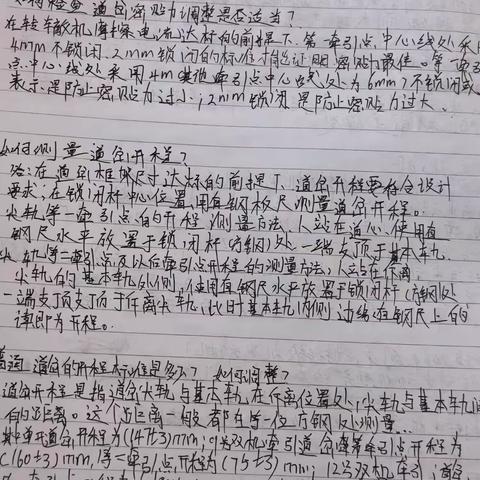 如何检查道岔密贴力调整是否适当?
在转辙机摩擦电流达标的前提下,第一牵引点中心线处采用
4mm不锁闭、2mm锁闭的标准才能证明密贴力最佳。第二牵引
点中心线处采用4mm其他牵引点中心线处为6mm?不锁闭或
表示是防止密贴力过小;2mm锁闭是防止密贴力过大。
如何测量道岔开程?
答:在道岔框架尺寸达标的前提下,道岔开程要符合设计
要求,在锁闭杆中心位置用直钢板尺测量道岔开程。
尖轨第一牵引点的开程测量方法,人站在道心,使用直
钢尺水平放置于锁闭杆(方钢)处一端支顶于基本轨,
尖轨第二牵引点及以后牵引点开程的测量方法,人站在休闲
尖轨的基本轨外侧,使用直钢尺水平放置于锁闭杆(方钢)处
一端支顶支顶于斥离尖轨,此时基本轨内侧边缘直钢尺上的
读即为开程。
道岔的开程标准是多少?如何调整?
道岔开程是指道岔尖轨与基本轨在斥离位置处,尖轨与基本轨间
的距离。这个距离一般都在第一位方钢处测量…
单开道岔,开程为(147±3)mm;9#双机牵引道岔第一牵引点开程为
(160±3)mm,第二牵引点开程为(75±3)mm;12号双机牵引道岔,